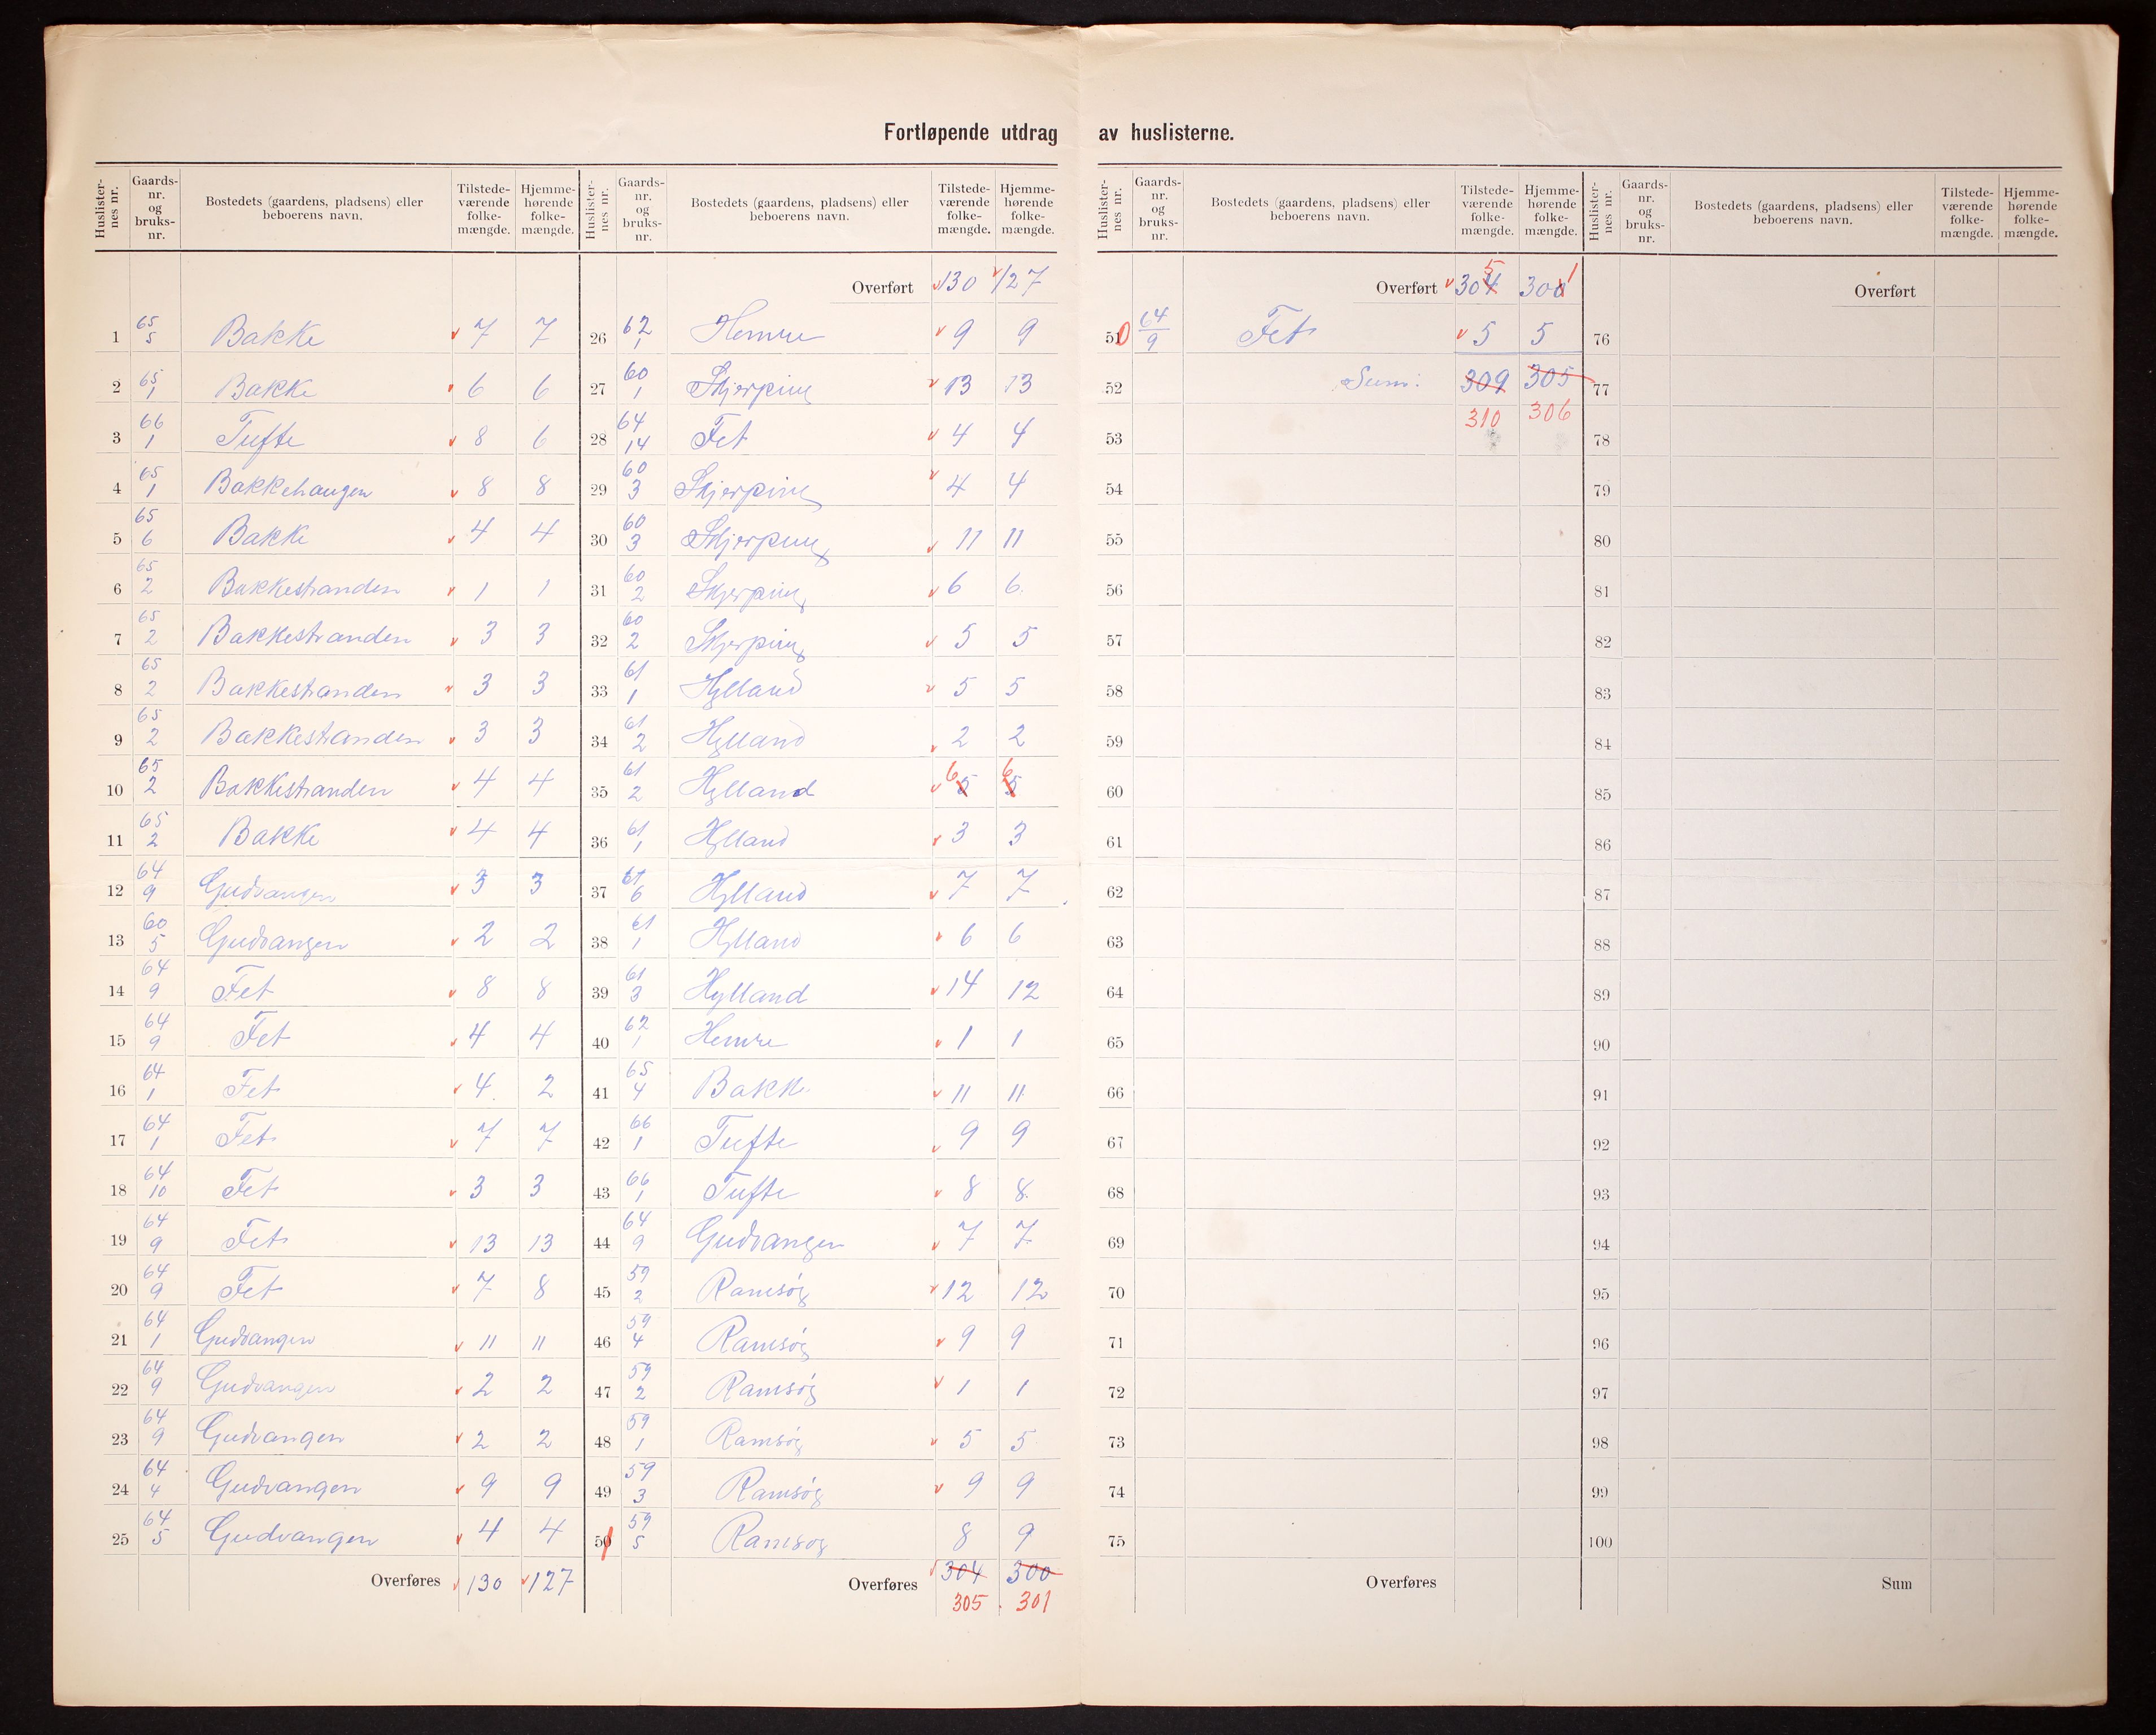 Fortløpende utdrag av huslisterne.
Huslisternes nr. Gaardsnr. og bruksnr. Bostedets (gaardens, pladsens) eller beboerens navn. Tilstedeværende folkemængde. Hjemmehørende folkemængde.
1 65 5 Bakke 7 7
2 65 1 Bakke 6 6
3 66 1 Tufte 8 6
4 65 1 Bakkehaugen 8 8
5 65 6 Bakke 4 4
6 65 2 Bakkestranden 1 1
7 65 2 Bakkestranden 3 3
8 65 2 Bakkestranden 3 3
9 65 2 Bakkestranden 3 3
10 65 2 Bakkestranden 4 4
11 65 2 Bakke 4 4
12 64 9 Gudvangen 3 3
13 60 5 Gudvangen 2 2
14 64 9 Fet 8 8
15 64 9 Fet 4 4
16 64 1 Fet 4 2
17 64 1 Fet 7 7
18 64 10 Fet 3 3
19 64 9 Fet 13 13
20 64 9 Fet 7 8
21 64 1 Gudvangen 11 11
22 64 9 Gudvangen 2 2
23 64 9 Gudvangen 2 2
24 64 4 Gudvangen 9 9
25 64 5 Gudvangen 4 4
Overføres 130 127
Huslisternes nr. Gaardsnr. og bruksnr. Bostedets (gaardens, pladsens) eller beboerens navn. Tilstedeværende folkemængde. Hjemmehørende folkemængde.
Overført 130 127
26 62 1 Hemre 9 9
27 60 1 Skjerping 13 13
28 64 14 Fet 4 4
29 60 3 Skjerping 4 4
30 60 3 Skjerping 11 11
31 60 2 Skjerping 6 6
32 60 2 Skjerping 5 5
33 61 1 Hylland 5 5
34 61 2 Hylland 2 2
35 61 2 Hylland 6 5 6 5
36 61 1 Hylland 3 3
37 61 6 Hylland 7 7
38 61 1 Hylland 6 6
39 61 3 Hylland 14 12
40 62 1 Hemre 1 1
41 65 4 Bakke 11 11
42 66 1 Tufte 9 9
43 66 1 Tufte 8 8
44 64 9 Gudvangen 7 7
45 59 2 Ramsøy 12 12
46 59 4 Ramsøy 9 9
47 59 2 Ramsøy 1 1
48 59 1 Ramsøy 5 5
49 59 3 Ramsøy 9 9
50 1 59 5 Ramsøy 8 9
Overføres 304 300
305 301
Huslisternes nr. Gaardsnr. og bruksnr. Bostedets (gaardens, pladsens) eller beboerens navn. Tilstedeværende folkemængde. Hjemmehørende folkemængde.
Overført 304 5 300 1
51 0 64 9 Fet 5 5
52 Sum: 309 305
310 306
53
54
55
56
57
58
59
60
61
62
63
64
65
66
67
68
69
70
71
72
73
74
75
Overføres
Huslisternes nr. Gaardsnr. og bruksnr. Bostedets (gaardens, pladsens) eller beboerens navn. Tilstedeværende folkemængde. Hjemmehørende folkemængde.
Overført
76
77
78
79
80
81
82
83
84
85
86
87
88
89
90
91
92
93
94
95
96
97
98
99
100
Sum